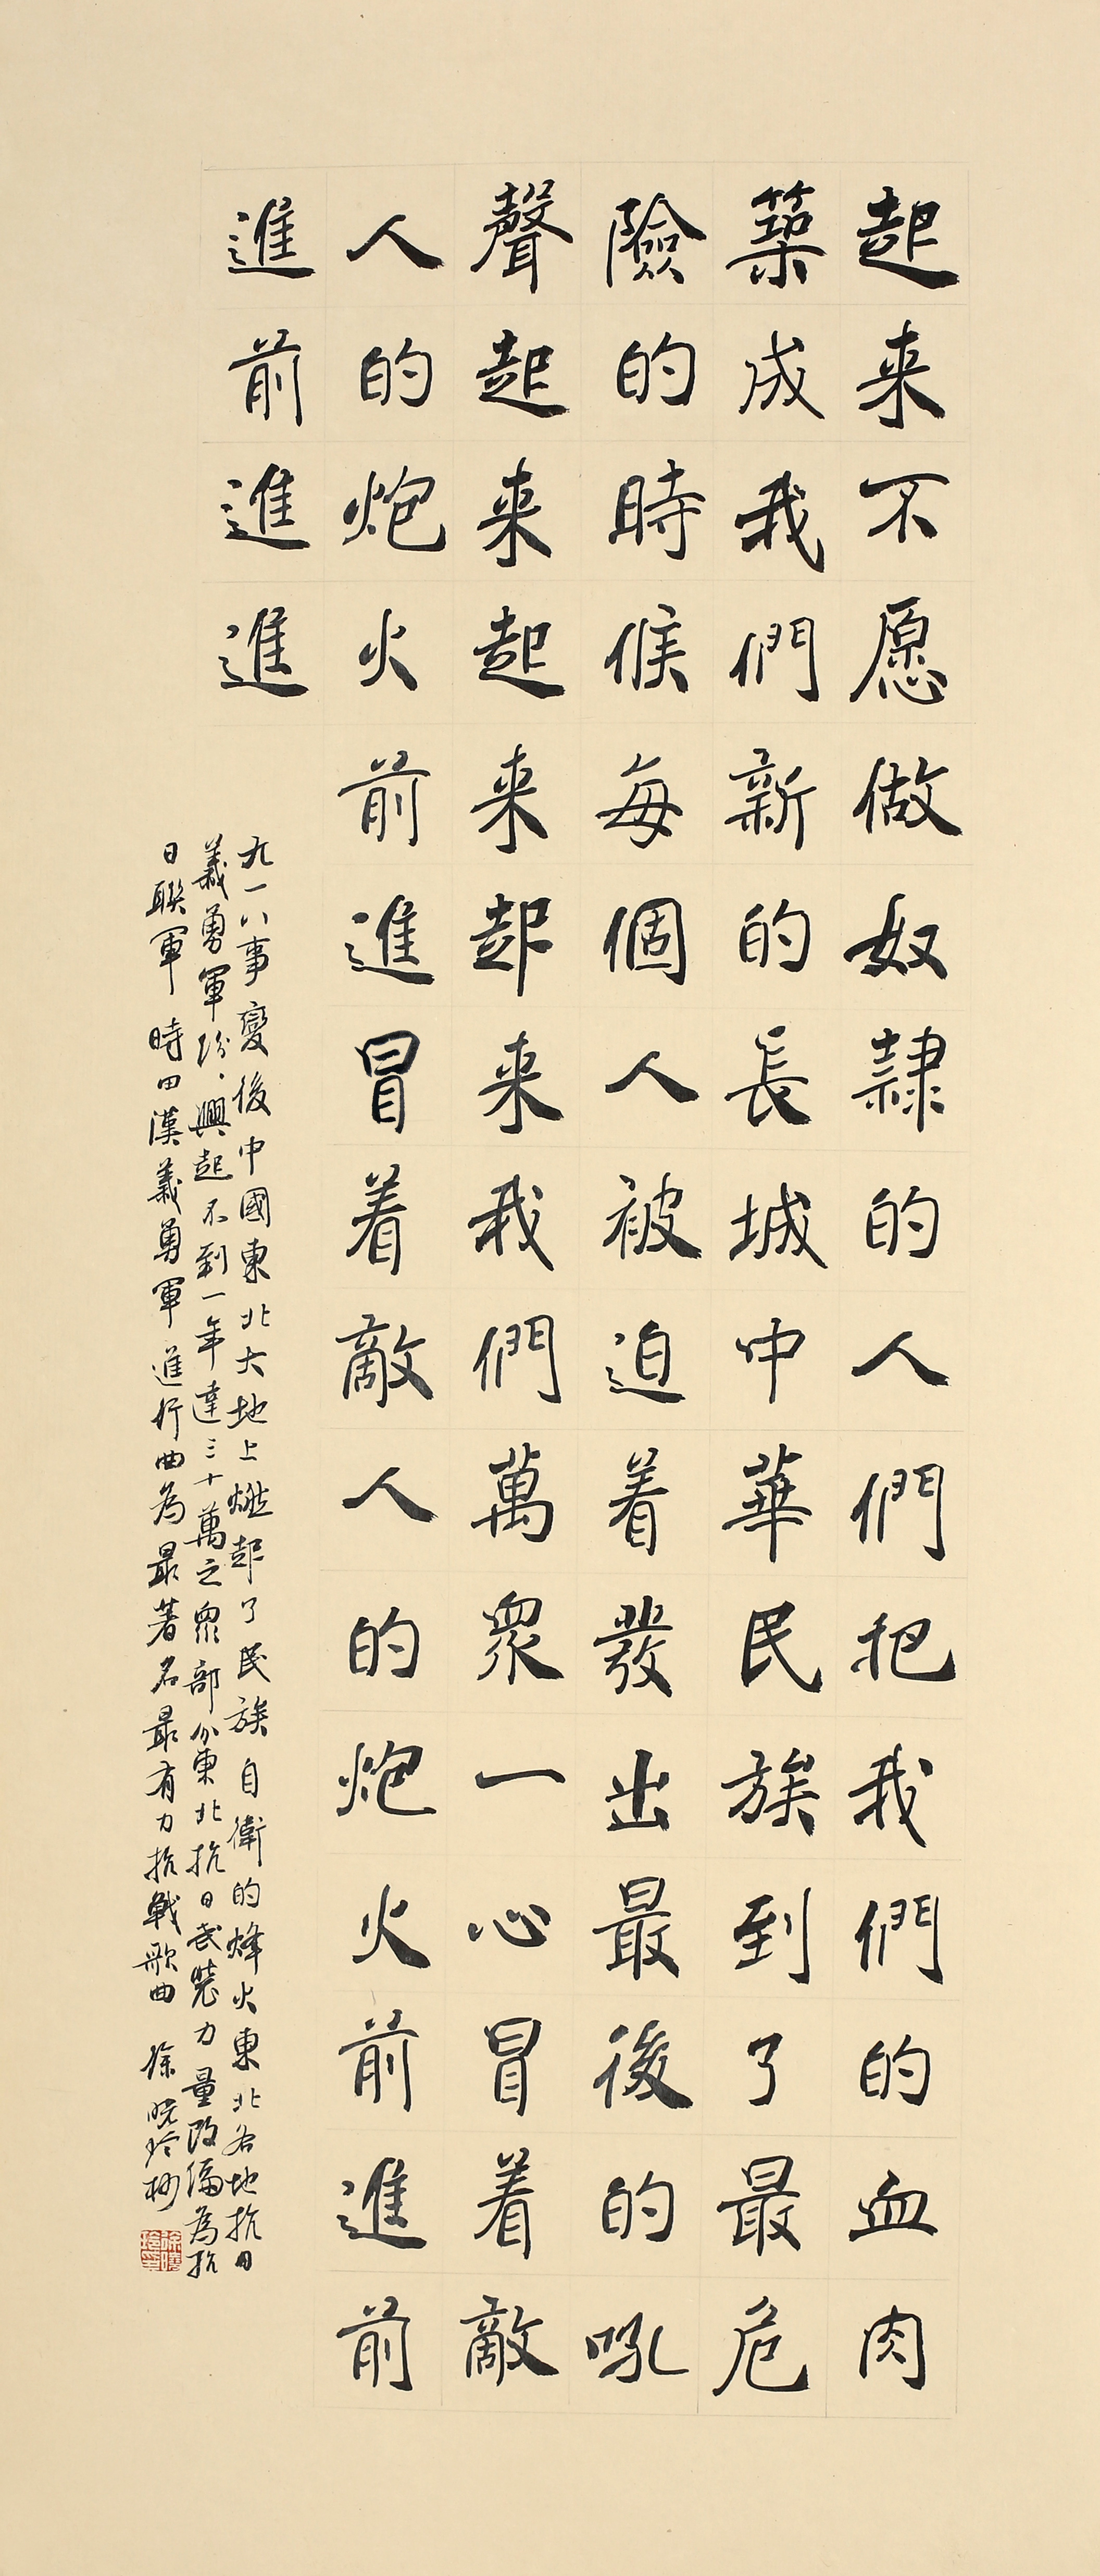 起来不愿做奴隸的人們把我們的血肉
築成我們新的長城中華民族到了最危
險的時候每個人被迫着發出最後的吼
聲起来起来起来我們萬衆一心冒着敵
人的炮火前進冒着敵人的炮火前進前
進前進進
九一八事變後中國東北大地上燃起了民族自衛的烽火東北各地抗日
義勇軍紛〻興起不到一年達三十萬之衆部分東北抗日武裝力量改編為抗
日聯軍時田漢義勇軍進行曲為最著名最有力抗戰歌曲 徐曉玲抄